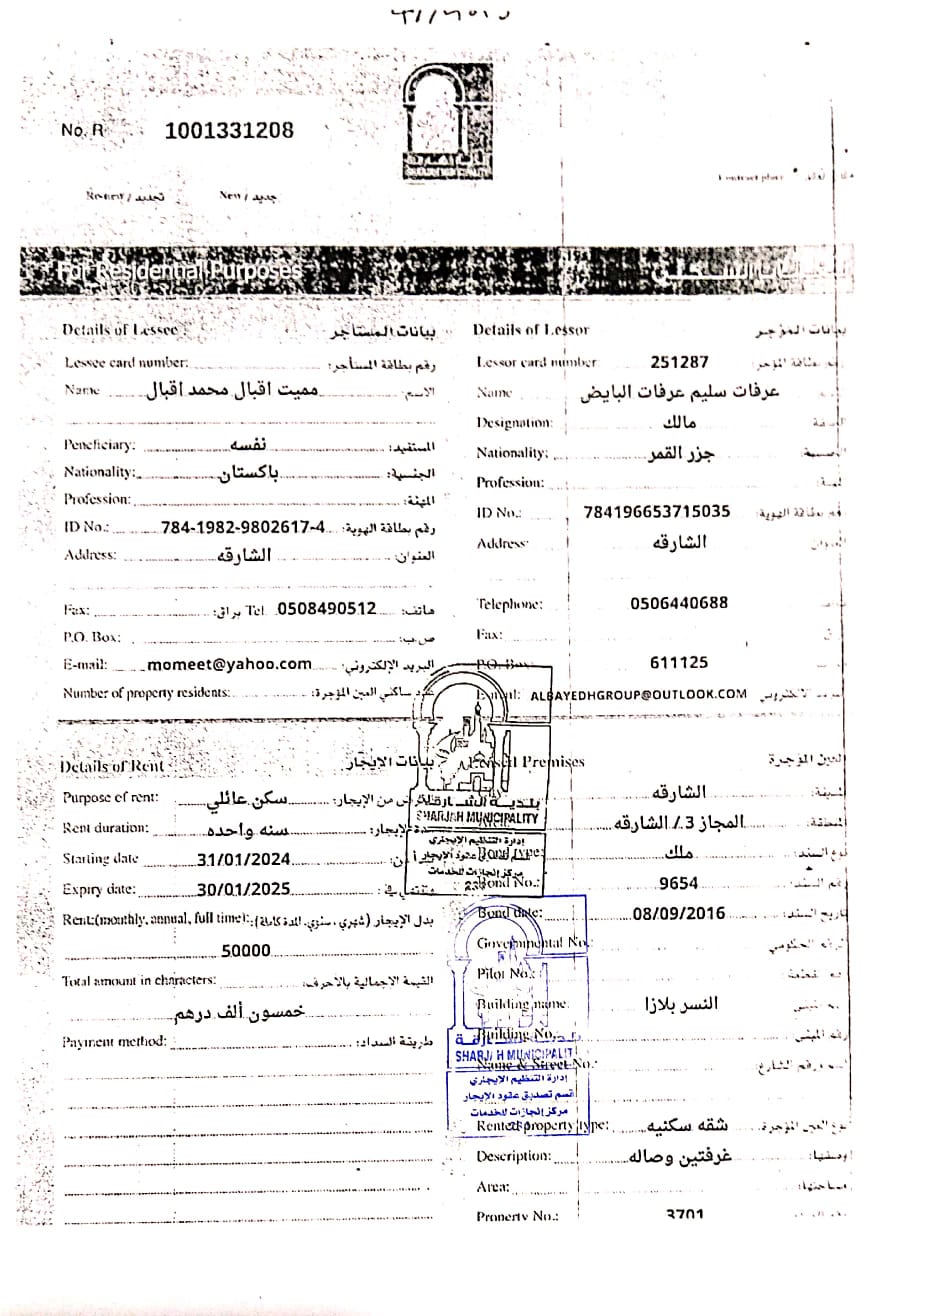 No. R 1001331208
SHARJAH MUNICIPALITY
Contract place
Renew / تجديد New / جديد
For Residential Purposes
Details of Lessee بيانات المستأجر
Lessee card number: رقم بطاقة المستأجر:
Name مميت اقبال محمد اقبال الاسم:
Peneficiary: نفسه المستفيد:
Nationality: باكستان الجنسية:
Profession: المهنة:
ID No.: 784-1982-9802617-4 رقم بطاقة الهوية:
Address: الشارقه العنوان:
Fax: براق: Tel 0508490512 هاتف:
P.O. Box: ص.ب:
E-mail: momeet@yahoo.com البريد الإلكتروني:
Number of property residents: عدد ساكني العين المؤجرة:
Details of Lessor بيانات المؤجر
Lessor card number 251287 رقم بطاقة المؤجر:
Name عرفات سليم عرفات البايض
Designation: مالك
Nationality: جزر القمر
Profession:
ID No.: 784196653715035 رقم بطاقة الهوية:
Address: الشارقه
Telephone: 0506440688
Fax:
P.O. Box: 611125
E-mail: ALBAYEDHGROUP@OUTLOOK.COM
Details of Rent بيانات الإيجار
Purpose of rent: سكن عائلي الغرض من الإيجار:
Rent duration: سنه واحده مدة الإيجار:
Starting date 31/01/2024
Expiry date: 30/01/2025 وتنتهي في:
Rent:(monthly, annual, full time): بدل الإيجار (شهري، سنوي، المدة كاملة):
50000
Total amount in characters: القيمة الإجمالية بالأحرف:
خمسون ألف درهم
Payment method: طريقة السداد:
Premises العين المؤجرة
الشارقه
المجاز 3 / الشارقه
Bond type: ملك نوع السند:
Bond No.: 9654 رقم السند:
Bond date: 08/09/2016 تاريخ السند:
Governmental No.: الرقم الحكومي
Pilot No.:
Building name: النسر بلازا
Building No. رقم المبنى
Name & Street No.:
Rented property type: شقه سكنيه نوع العين المؤجرة:
Description: غرفتين وصاله وصفها:
Area: مساحتها:
Property No.: 3701
بلدية الشارقة
SHARJAH MUNICIPALITY
إدارة التنظيم الإيجاري
قسم تصديق عقود الإيجار
مركز إنجازات للخدمات
بلدية الشارقة
SHARJAH MUNICIPALITY
إدارة التنظيم الإيجاري
قسم تصديق عقود الإيجار
مركز إنجازات للخدمات